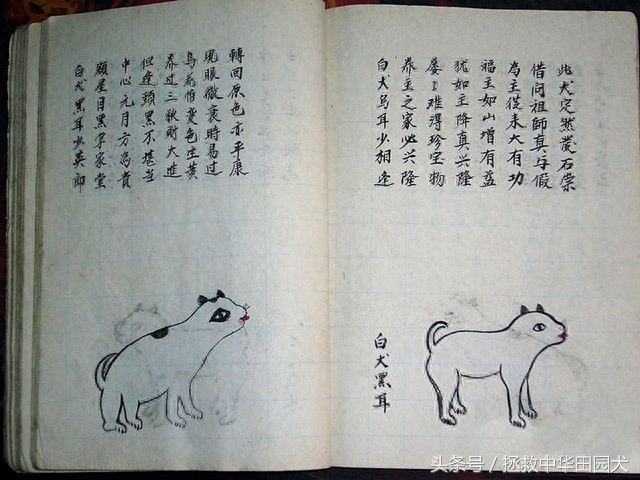 白犬黑耳少英郎
額星目黑拿家堂
中心元月方為貴
但逢頭黑不堪当
养过三秋财大進
烏前怕变色生黄
現眼微衰時易过
轉回原色亦平康
白犬乌耳少相逢
养主之家必兴隆
屡〻难得珍宝物
犹如主降真兴隆
福主如山增有益
為主從来大有功
借问祖師真与假
此犬定然發石崇
白犬黑耳
头条号／拯救中华田园犬